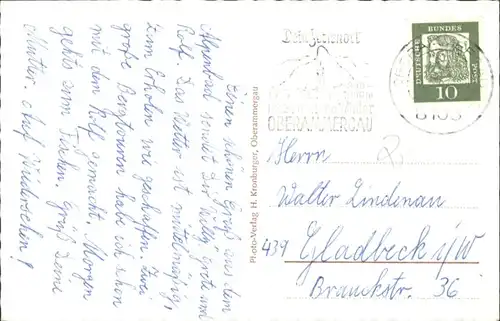 Einen schönen Gruß aus dem
Alpenbad sendet Dir Willy, Grete und
Rolf. Das Wetter ist mittelmäßig,
zum Erholen wie geschaffen. Zwei
große Bergtouren habe ich schon
mit dem Rolf gemacht. Morgen
geht's zum Fischen. Gruß Deine
Mutter. Auf Wiedersehen!
Photo-Verlag H. Kronburger, Oberammergau
Dein Ferienort
OBERAMMERGAU
DEUTSCHE
BUNDES
POST
10
8103
Herrn
Walter Lindenau
439 Gladbeck i/W
Brauckstr. 36